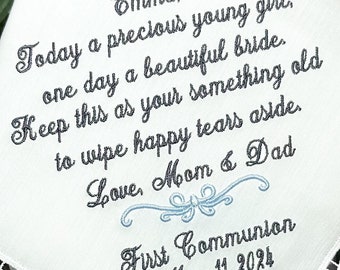 Emma,
Today a precious young girl,
one day a beautiful bride.
Keep this as your something old
to wipe happy tears aside.
Love, Mom & Dad
First Communion
11, 2024